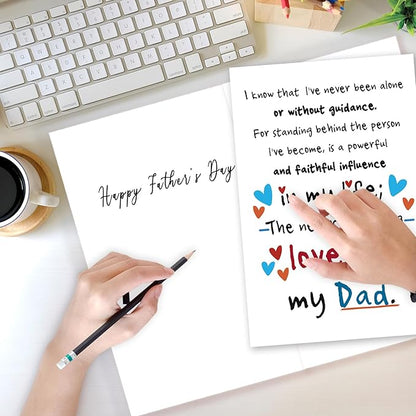 Happy Father's Day
I know that I've never been alone
or without guidance.
For standing behind the person
I've become, is a powerful
and faithful influence
in my
The
love
my Dad.